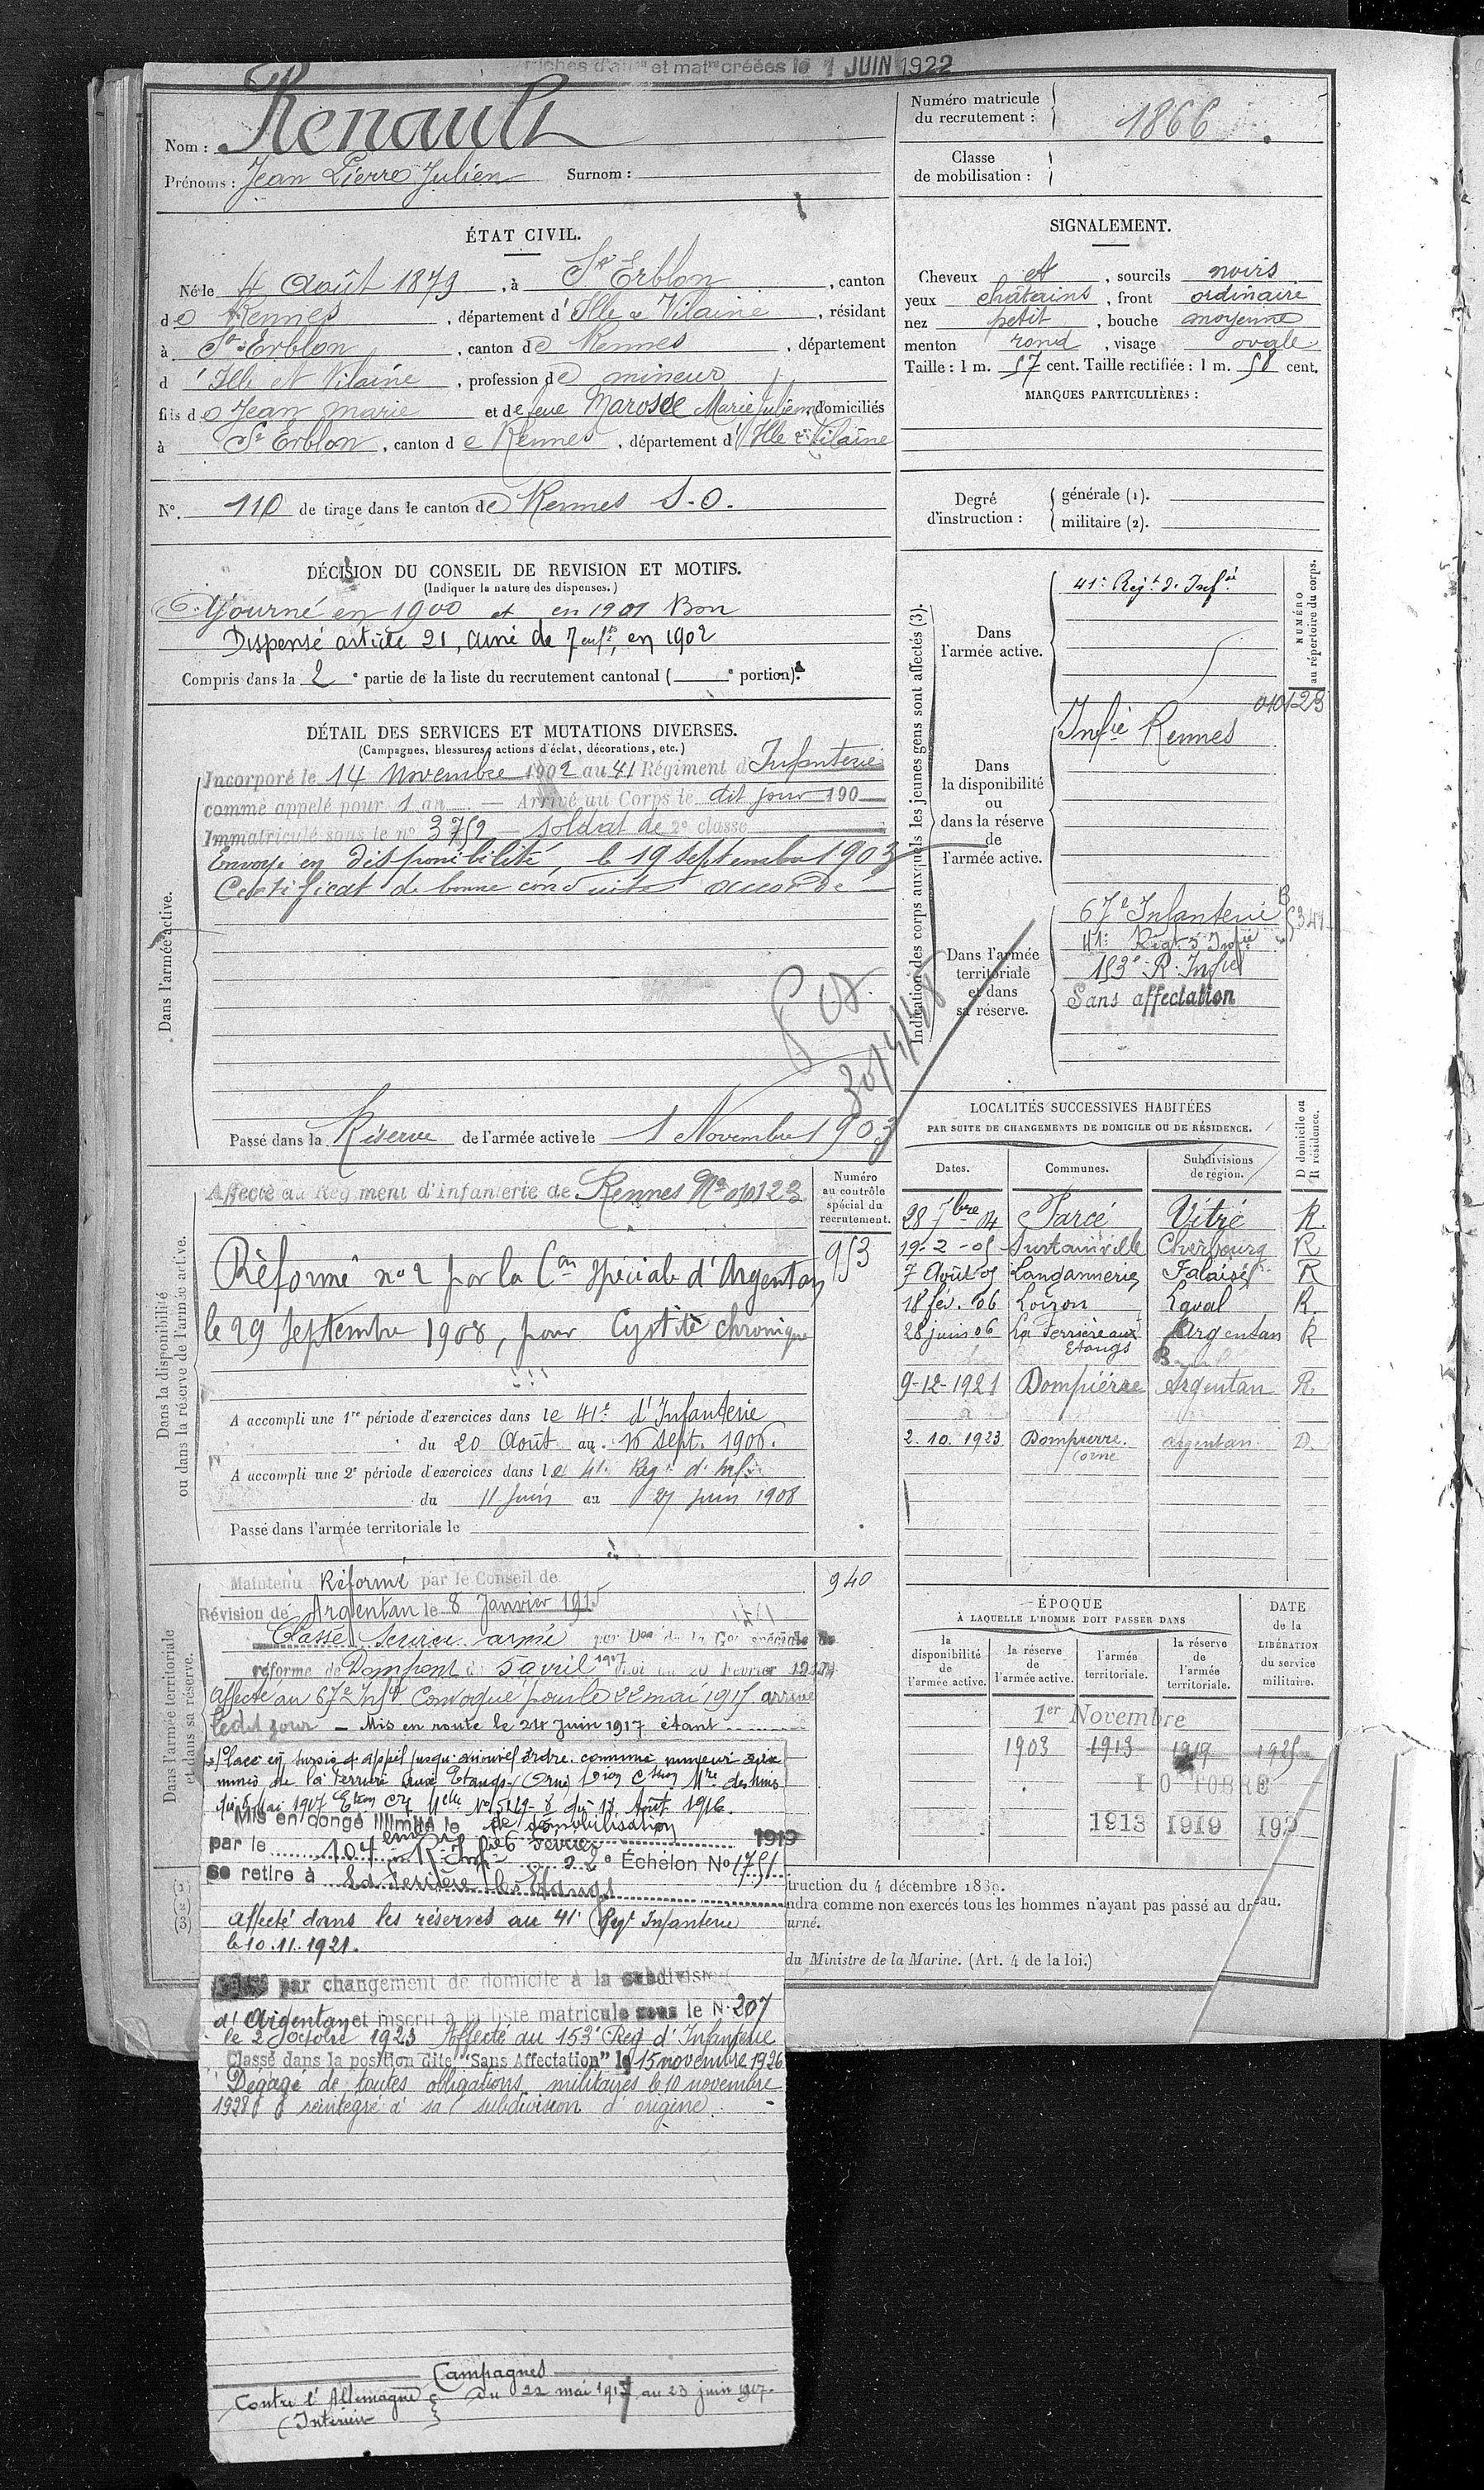 et mat créées le 1 JUIN 1922
Nom : Renault
Prénoms : Jean Pierre Julien Surnom :
Numéro matricule
du recrutement :
1866
Classe
de mobilisation :
ÉTAT CIVIL.
Né le 4 Août 1879, à St Erblon, canton
de Rennes, département d'Ille & Vilaine, résidant
à St Erblon, canton de Rennes, département
d'Ille et Vilaine, profession de mineur
fils de Jean Marie et de feue Marosse Marie Julienne domiciliés
à St Erblon, canton de Rennes, département d'Ille & Vilaine
No. 110 de tirage dans le canton de Rennes S.-O.
SIGNALEMENT.
Cheveux et, sourcils noirs
yeux châtains, front ordinaire
nez petit, bouche moyenne
menton rond, visage ovale
Taille : 1 m. 57 cent. Taille rectifiée : 1 m. 58 cent.
MARQUES PARTICULIÈRES :
Degré
d'instruction :
générale (1).
militaire (2).
DÉCISION DU CONSEIL DE REVISION ET MOTIFS.
(Indiquer la nature des dispenses.)
Ajourné en 1900 et en 1901 Bon
Dispensé article 21, aîné de 7 enfts, en 1902
Compris dans la 2e partie de la liste du recrutement cantonal ( e portion).
DÉTAIL DES SERVICES ET MUTATIONS DIVERSES.
(Campagnes, blessures, actions d'éclat, décorations, etc.)
Dans l'armée active.
Incorporé le 14 Novembre 1902 au 41 Régiment d'Infanterie
comme appelé pour 1 an. — Arrivé au Corps le dit jour 190
Immatriculé sous le no 3752 — soldat de 2e classe
Envoyé en disponibilité, le 19 septembre 1903
Certificat de bonne conduite accordé
30/4/48
Passé dans la Réserve de l'armée active le 1 Novembre 1903
Indication des corps auxquels les jeunes gens sont affectés (3).
NUMÉRO
au répertoire du corps.
Dans
l'armée active.
41e Régt d'Infie
Dans
la disponibilité
ou
dans la réserve
de
l'armée active.
Infie Rennes
010123
Dans l'armée
territoriale
et dans
sa réserve.
67e Infanterie
41e Régt d'Infie
153e R. Infie
Sans affectation
Dans la disponibilité
ou dans la réserve de l'armée active.
Affecté au Régiment d'Infanterie de Rennes No 010123
Numéro
au contrôle
spécial du
recrutement.
953
Réformé no 2 par la Con spéciale d'Argentan
le 29 Septembre 1908, pour Cystite chronique
A accompli une 1re période d'exercices dans le 41e d'Infanterie
du 20 Août au 16 sept. 1906.
A accompli une 2e période d'exercices dans le 41e Régt d'Inf.
du 11 Juin au 27 juin 1908
Passé dans l'armée territoriale le
LOCALITÉS SUCCESSIVES HABITÉES
PAR SUITE DE CHANGEMENTS DE DOMICILE OU DE RÉSIDENCE.
D domicile ou
R résidence.
Dates. Communes. Subdivisions
de région.
28 7bre 04 Parcé Vitré R.
19-2-05 Surtainville Cherbourg R
7 Août 05 Langannerie Falaise R
18 fév. 06 Loiron Laval R.
28 juin 06 La Ferrière aux Etangs Argentan R
9-12-1921 Dompierre Argentan R.
2.10.1923 Dompierre. Orne Argentan D.
Dans l'armée territoriale
et dans sa réserve.
Maintenu Réformé par le Conseil de
Révision de Argentan le 8 Janvier 1915
940
Classé Service armé par Don de la Con spéciale de
réforme de Domfront du 5 avril 1917 Loi du 20 Février 1917
Affecté au 67e Infie Convoqué pour le 22 mai 1917 arrivé
ledit jour — Mis en route le 24 Juin 1917 étant
Placé en sursis d'appel jusqu'à nouvel ordre comme mineur aux
mines de la Ferrière aux Etangs (Orne)
du 5 Mai 1917 No 5129-8 du 18 Août 1916.
Mis en congé illimité de démobilisation
par le 104eme R. Infie le 6 Février 1919
2e Échelon No 1751
se retire à La Ferrière les Etangs
Affecté dans les réserves au 41e Régt Infanterie
le 10.11.1921.
par changement de domicile à la subdivision
d'Argentan et inscrit à la liste matricule sous le No 207
le 2 Octobre 1923 Affecté au 153e Rég d'Infanterie
Classé dans la position dite "Sans Affectation" le 15 novembre 1926
Dégagé de toutes obligations militaires le 10 novembre
1928 & réintégré à sa subdivision d'origine.
Campagnes
Contre l'Allemagne
(Intérieur
du 22 mai 1917 au 23 juin 1917.
ÉPOQUE
À LAQUELLE L'HOMME DOIT PASSER DANS
DATE
de la
LIBÉRATION
du service
militaire.
la
disponibilité
de
l'armée active.
la réserve
de
l'armée active.
l'armée
territoriale.
la réserve
de
l'armée
territoriale.
1er Novembre
1903 1913 1919 1925
1913 1919 192
truction du 4 décembre 1889.
ndra comme non exercés tous les hommes n'ayant pas passé au drapeau.
urné.
du Ministre de la Marine. (Art. 4 de la loi.)